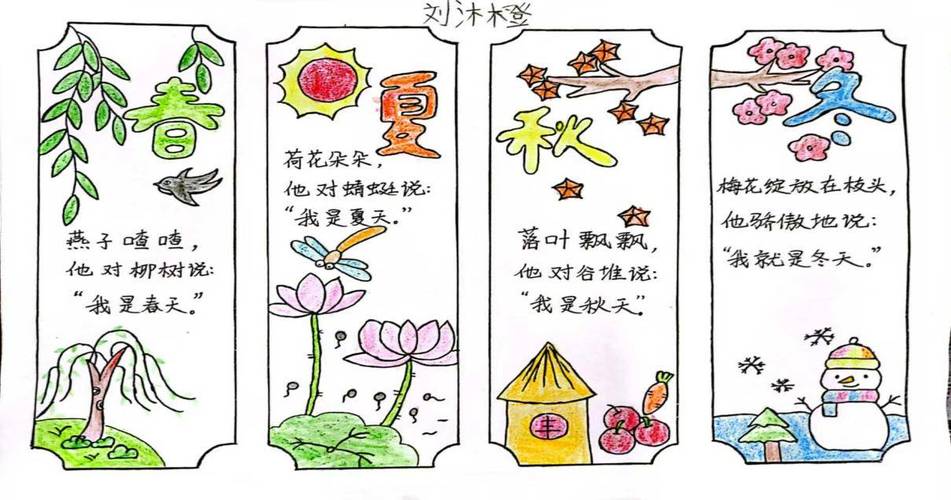 刘沐橙
春
燕子喳喳，
他对柳树说：
“我是春天。”
夏
荷花朵朵，
他对蜻蜓说：
“我是夏天。”
秋
落叶飘飘，
他对谷堆说：
“我是秋天”
丰
冬
梅花绽放在枝头，
他骄傲地说：
“我就是冬天。”